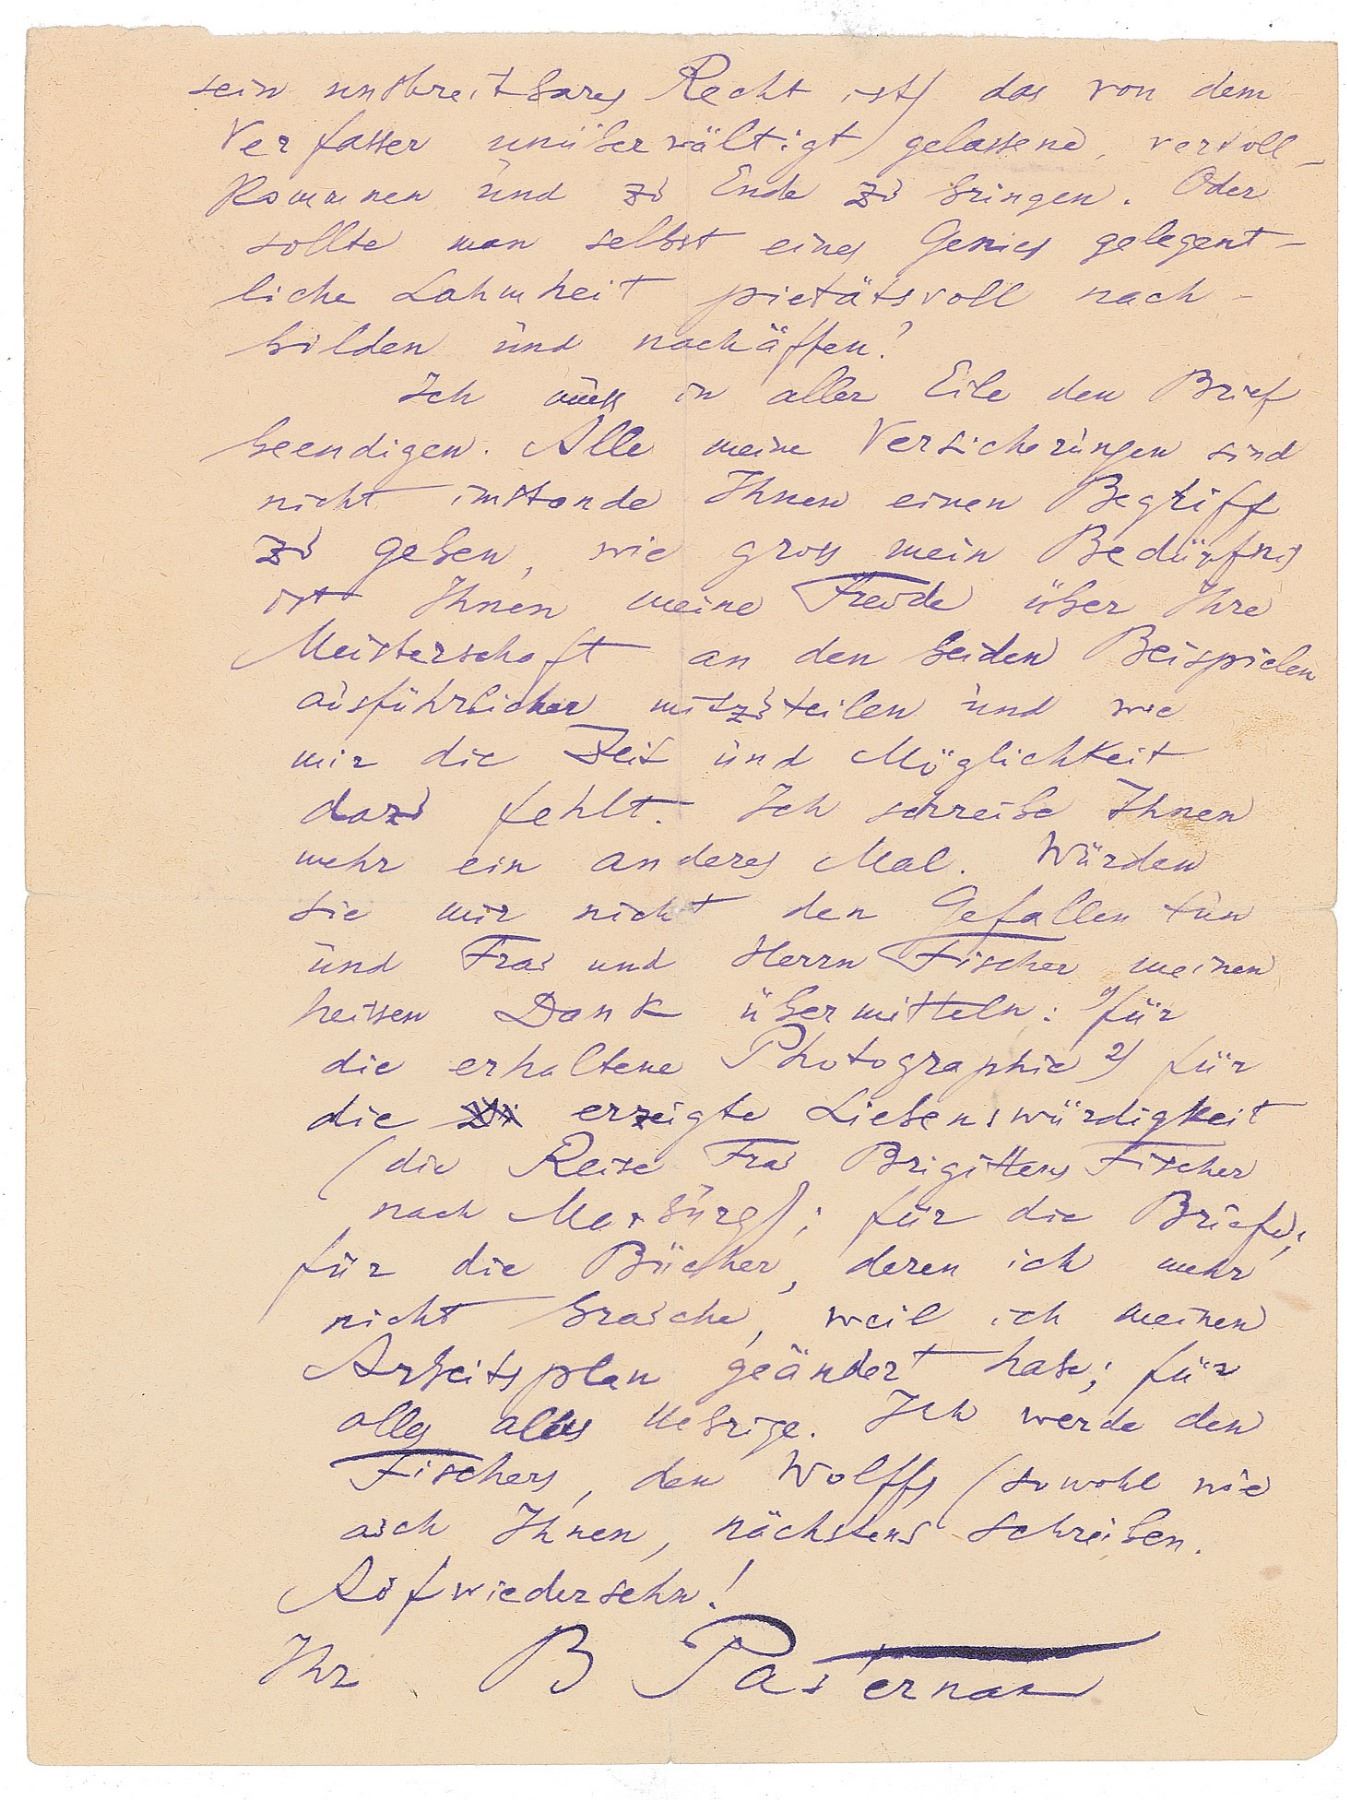 sein unstreitbares Recht ist) das von dem
Verfasser unüberwältigt gelassene, vervoll-
kommnen und zu Ende zu bringen. Oder
sollte man selbst eines Genies gelegent-
liche Lahmheit pietätsvoll nach-
bilden und nachäffen?
Ich muss in aller Eile den Brief
beendigen. Alle meine Versicherungen sind
nicht imstande Ihnen einen Begriff
zu geben, wie gross mein Bedürfnis
ist Ihnen meine Freude über Ihre
Meisterschaft an den beiden Beispielen
ausführlicher mitzuteilen und wie
mir die Zeit und Möglichkeit
dazu fehlt. Ich schreibe Ihnen
mehr ein anderes Mal. Würden
Sie mir nicht den Gefallen tun
und Frau und Herrn Fischer meinen
heissen Dank übermitteln: 1) für
die erhaltene Photographie 2) für
die erzeigte Liebenswürdigkeit
(die Reise Frau Brigittens Fischer
nach Marburg); für die Briefe;
für die Bücher, deren ich mehr
nicht brauche, weil ich meinen
Arbeitsplan geändert habe; für
alles alles Uebrige. Ich werde den
Fischers, den Wolffs (sowohl wie
auch Ihnen, nächstens schreiben.
Aufwiedersehn!
Ihr B Pasternak